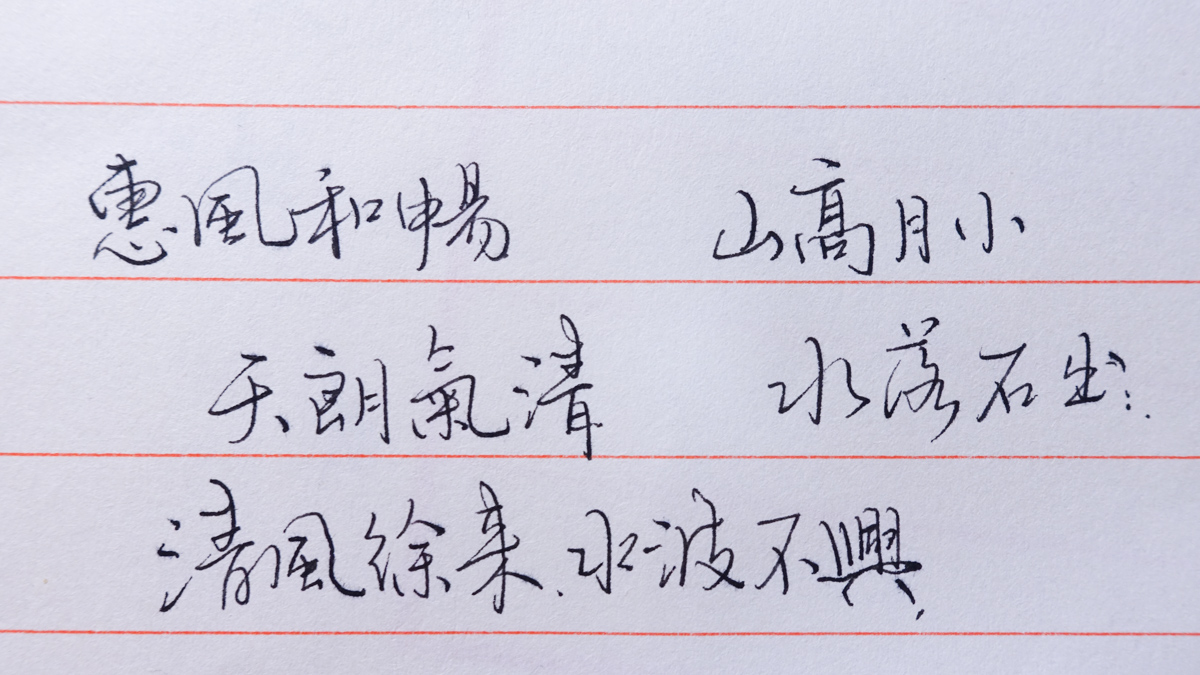 惠風和暢 山高月小
天朗氣清 水落石出
清風徐来、水波不興、